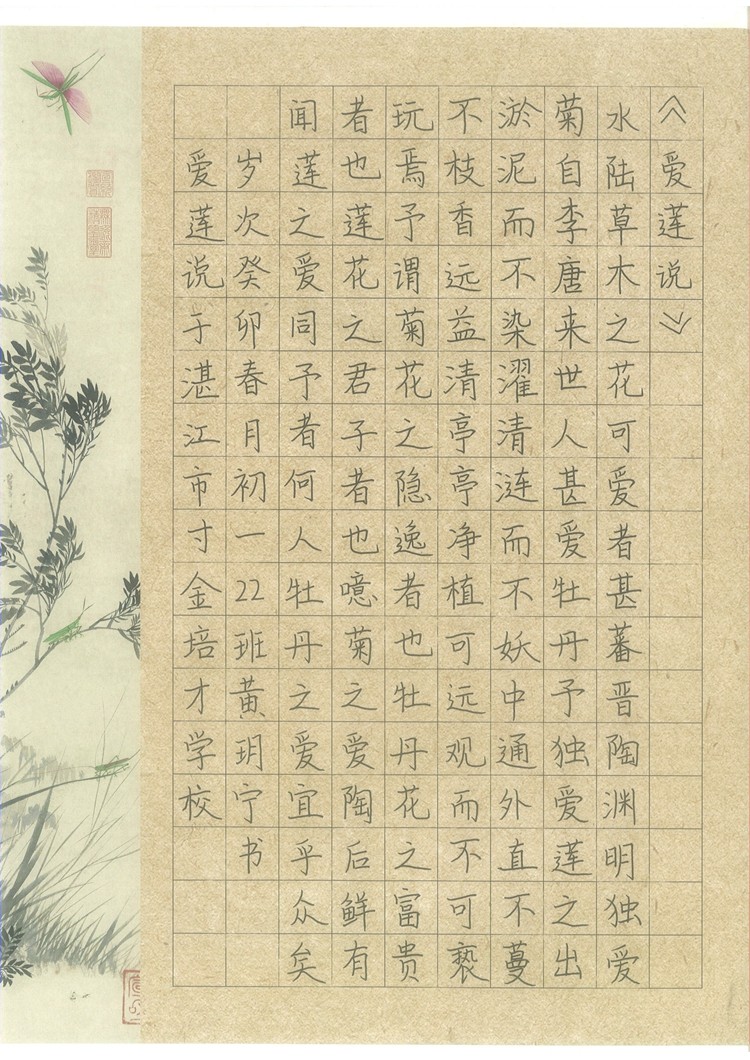 《爱莲说》
水陆草木之花可爱者甚蕃晋陶渊明独爱
菊自李唐来世人甚爱牡丹予独爱莲之出
淤泥而不染濯清涟而不妖中通外直不蔓
不枝香远益清亭亭净植可远观而不可亵
玩焉予谓菊花之隐逸者也牡丹花之富贵
者也莲花之君子者也噫菊之爱陶后鲜有
闻莲之爱同予者何人牡丹之爱宜乎众矣
岁次癸卯春月初一22班黄玥宁书
爱莲说于湛江市寸金培才学校